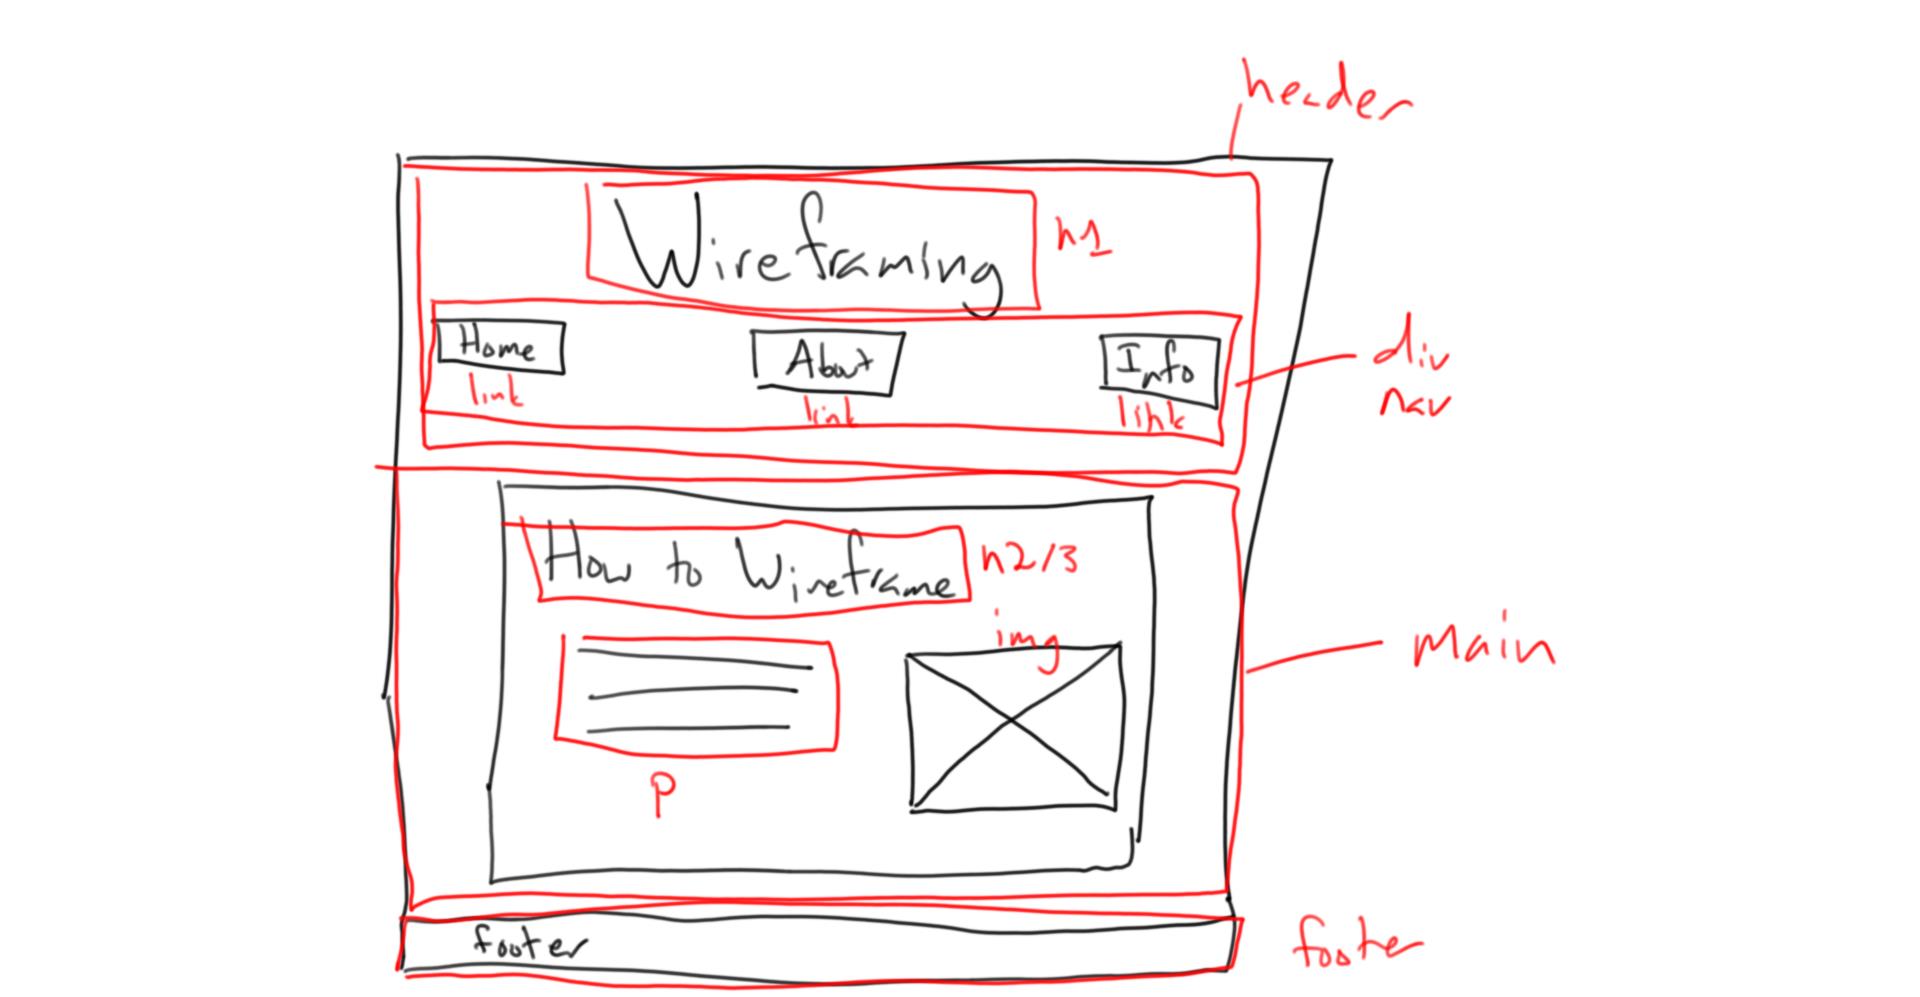 header
Wireframing
h1
Home
About
Info
link
link
link
div
nav
How to Wireframe
h2/3
img
p
main
footer
footer